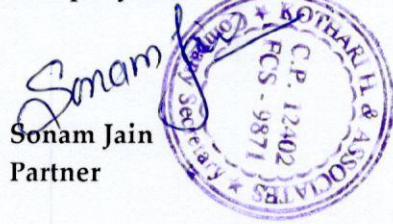 Sonam Jain
Sonam Jain
Partner
KOTHARI H. & ASSOCIATES
Company Secretary
C.P. 12402
FCS - 9871